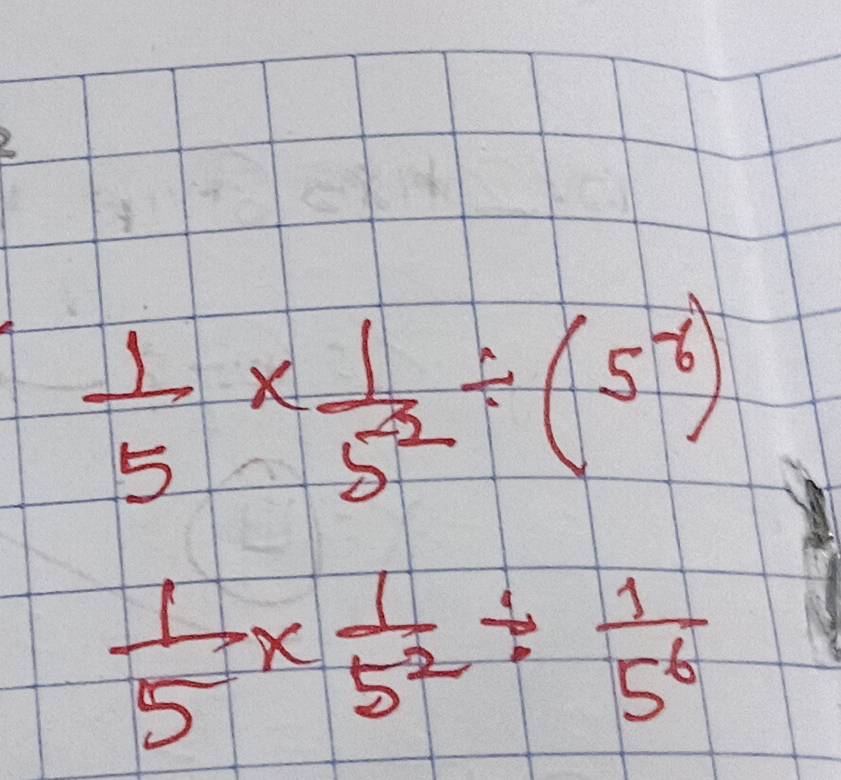 1/5 × 1/5^-2 ÷ (5^-6)
1/5 × 1/5^2 ÷ 1/5^6